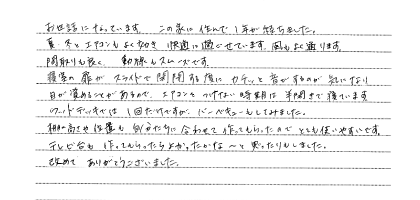 お世話になっています。この家に住んで1年が経ちました。
夏・冬とエアコンもよく効き快適に過ごせています。風もよく通ります。
間取りも良く、動線もスムーズです。
寝室の扉がスライドで開閉する際にカチッと音がするのが気になり
目が覚めることがあるので、エアコンをつけない時期は半開きで寝ています。
ウッドデッキでは1回だけですが、バーベキューもしてみました。
棚の高さや位置も自分たちに合わせて作ってもらったのでとても使いやすいです。
テレビ台も作ってもらったらよかったかな〜と思ったりもしました。
改めてありがとうございました。